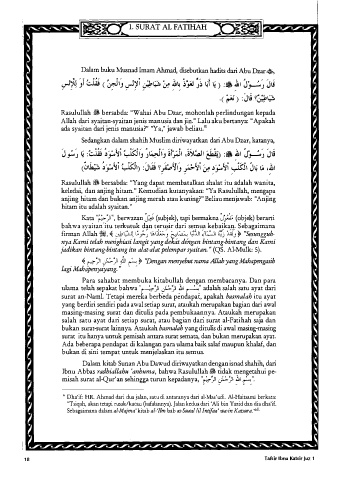 1. SURAT AL FATIHAH
Dalam buku Musnad Imam Ahmad, disebutkan hadits dari Abu Dzar ﷺ,
قَالَ رَسُوْلُ اللهِ ﷺ: ( يَا أَبَا ذَرٍّ تَعَوَّذْ بِاللهِ مِنْ شَيَاطِيْنِ الْإِنْسِ وَالْجِنِّ ) فَقُلْتُ أَوَ لِلْإِنْسِ
شَيَاطِيْنُ؟ قَالَ: ( نَعَمْ ).
Rasulullah ﷺ bersabda: "Wahai Abu Dzar, mohonlah perlindungan kepada
Allah dari syaitan-syaitan jenis manusia dan jin." Lalu aku bertanya: "Apakah
ada syaitan dari jenis manusia?" "Ya," jawab beliau.
Sedangkan dalam shahih Muslim diriwayatkan dari Abu Dzar, katanya,
قَالَ رَسُوْلُ اللهِ ﷺ: (يَقْطَعُ الصَّلَاةَ، الْمَرْأَةُ وَالْحِمَارُ وَالْكَلْبُ الْأَسْوَدُ فَقُلْتُ: يَا رَسُوْلَ
اللهِ، مَا بَالُ الْكَلْبِ الْأَسْوَدِ مِنَ الْأَحْمَرِ وَالْأَصْفَرِ؟ فَقَالَ: (الْكَلْبُ الْأَسْوَدُ شَيْطَانٌ)
Rasulullah ﷺ bersabda: "Yang dapat membatalkan shalat itu adalah wanita,
keledai, dan anjing hitam." Kemudian kutanyakan: "Ya Rasulullah, mengapa
anjing hitam dan bukan anjing merah atau kuning?" Beliau menjawab: "Anjing
hitam itu adalah syaitan."
Kata "الرَّجِيْمُ", berwazan فَعِيْلٌ (subjek), tapi bermakna مَفْعُوْلٌ (objek) berarti
bahwa syaitan itu terkutuk dan terusir dari semua kebaikan. Sebagaimana
firman Allah ﷻ, ﴿ وَلَقَدْ زَيَّنَّا السَّمَاءَ الدُّنْيَا بِمَصَابِيحَ وَجَعَلْنَاهَا رُجُومًا لِلشَّيَاطِينِ ﴾ "Sesungguh-
nya Kami telah menghiasi langit yang dekat dengan bintang-bintang dan Kami
jadikan bintang-bintang itu alat-alat pelempar syaitan." (QS. Al-Mulk: 5).
﴿ بِسْمِ اللَّهِ الرَّحْمَنِ الرَّحِيمِ ﴾ "Dengan menyebut nama Allah yang Mahapengasih
lagi Mahapenyayang."
Para sahabat membuka kitabullah dengan membacanya. Dan para
ulama telah sepakat bahwa "بِسْمِ اللهِ الرَّحْمَنِ الرَّحِيْمِ" adalah salah satu ayat dari
surat an-Naml. Tetapi mereka berbeda pendapat, apakah basmalah itu ayat
yang berdiri sendiri pada awal setiap surat, ataukah merupakan bagian dari awal
masing-masing surat dan ditulis pada pembukaannya. Ataukah merupakan
salah satu ayat dari setiap surat, atau bagian dari surat al-Fatihah saja dan
bukan surat-surat lainnya. Ataukah basmalah yang ditulis di awal masing-masing
surat itu hanya untuk pemisah antara surat semata, dan bukan merupakan ayat.
Ada beberapa pendapat di kalangan para ulama baik salaf maupun khalaf, dan
bukan di sini tempat untuk menjelaskan itu semua.
Dalam kitab Sunan Abu Dawud diriwayatkan dengan isnad shahih, dari
Ibnu Abbas radhiallahu 'anhuma, bahwa Rasulullah ﷺ tidak mengetahui pe-
misah surat al-Qur'an sehingga turun kepadanya, "بِسْمِ اللهِ الرَّحْمَنِ الرَّحِيْمِ".
Dha'if: HR. Ahmad dari dua jalan, satu di antaranya dari al-Mas'udi. Al-Haitsami berkata:
"Tsiqah, akan tetapi (hafalannya). Jalan kedua dari 'Ali bin Yazid dan dia dha'if.
Sebagaimana dalam al-Majma' kitab al-'Ilm bab
18 Tafsir Ibnu Katsir Juz 1